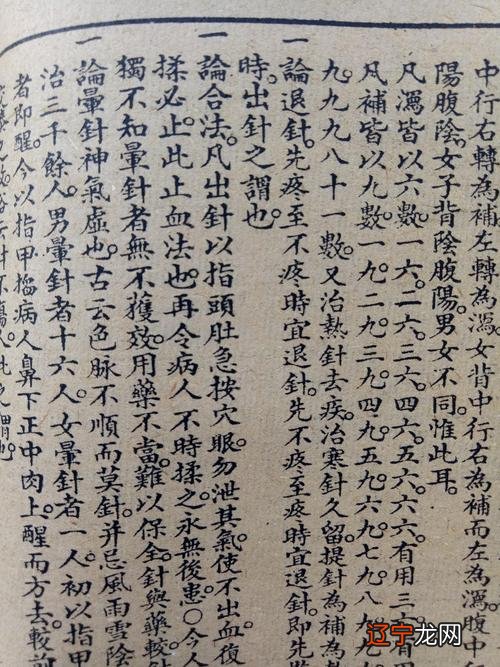 中行右轉為補左轉為瀉女背中行右為補而左為瀉腹中行
陽腹陰女子背陰腹陽男女不同惟此耳
凡瀉皆以六數一六二六三六四六五六六六有用三六有
凡補皆以九數一九二九三九四九五九六九七九八九九
九九九八十一數又治熱針去疾治寒針久留提針為補
一論退針先疼至不疼時宜退針先不疼至疼時宜退針即先
時出針之謂也
一論合法凡出針以指頭肚急按穴眼勿泄其氣使不出血後
揉必止此止血法也再令病人不時揉之永無後患○今人
獨不知暈針者無不獲效用藥不當難以保全針與藥較
一論暈針神氣虛也古云色脉不順而莫針并忌風雨雪陰
治三千餘人男暈針者十六人女暈針者一人初以指甲
者即醒今以指甲搯病人鼻下正中肉上醒而方去較
辽宁龙网
www.lnlong.com